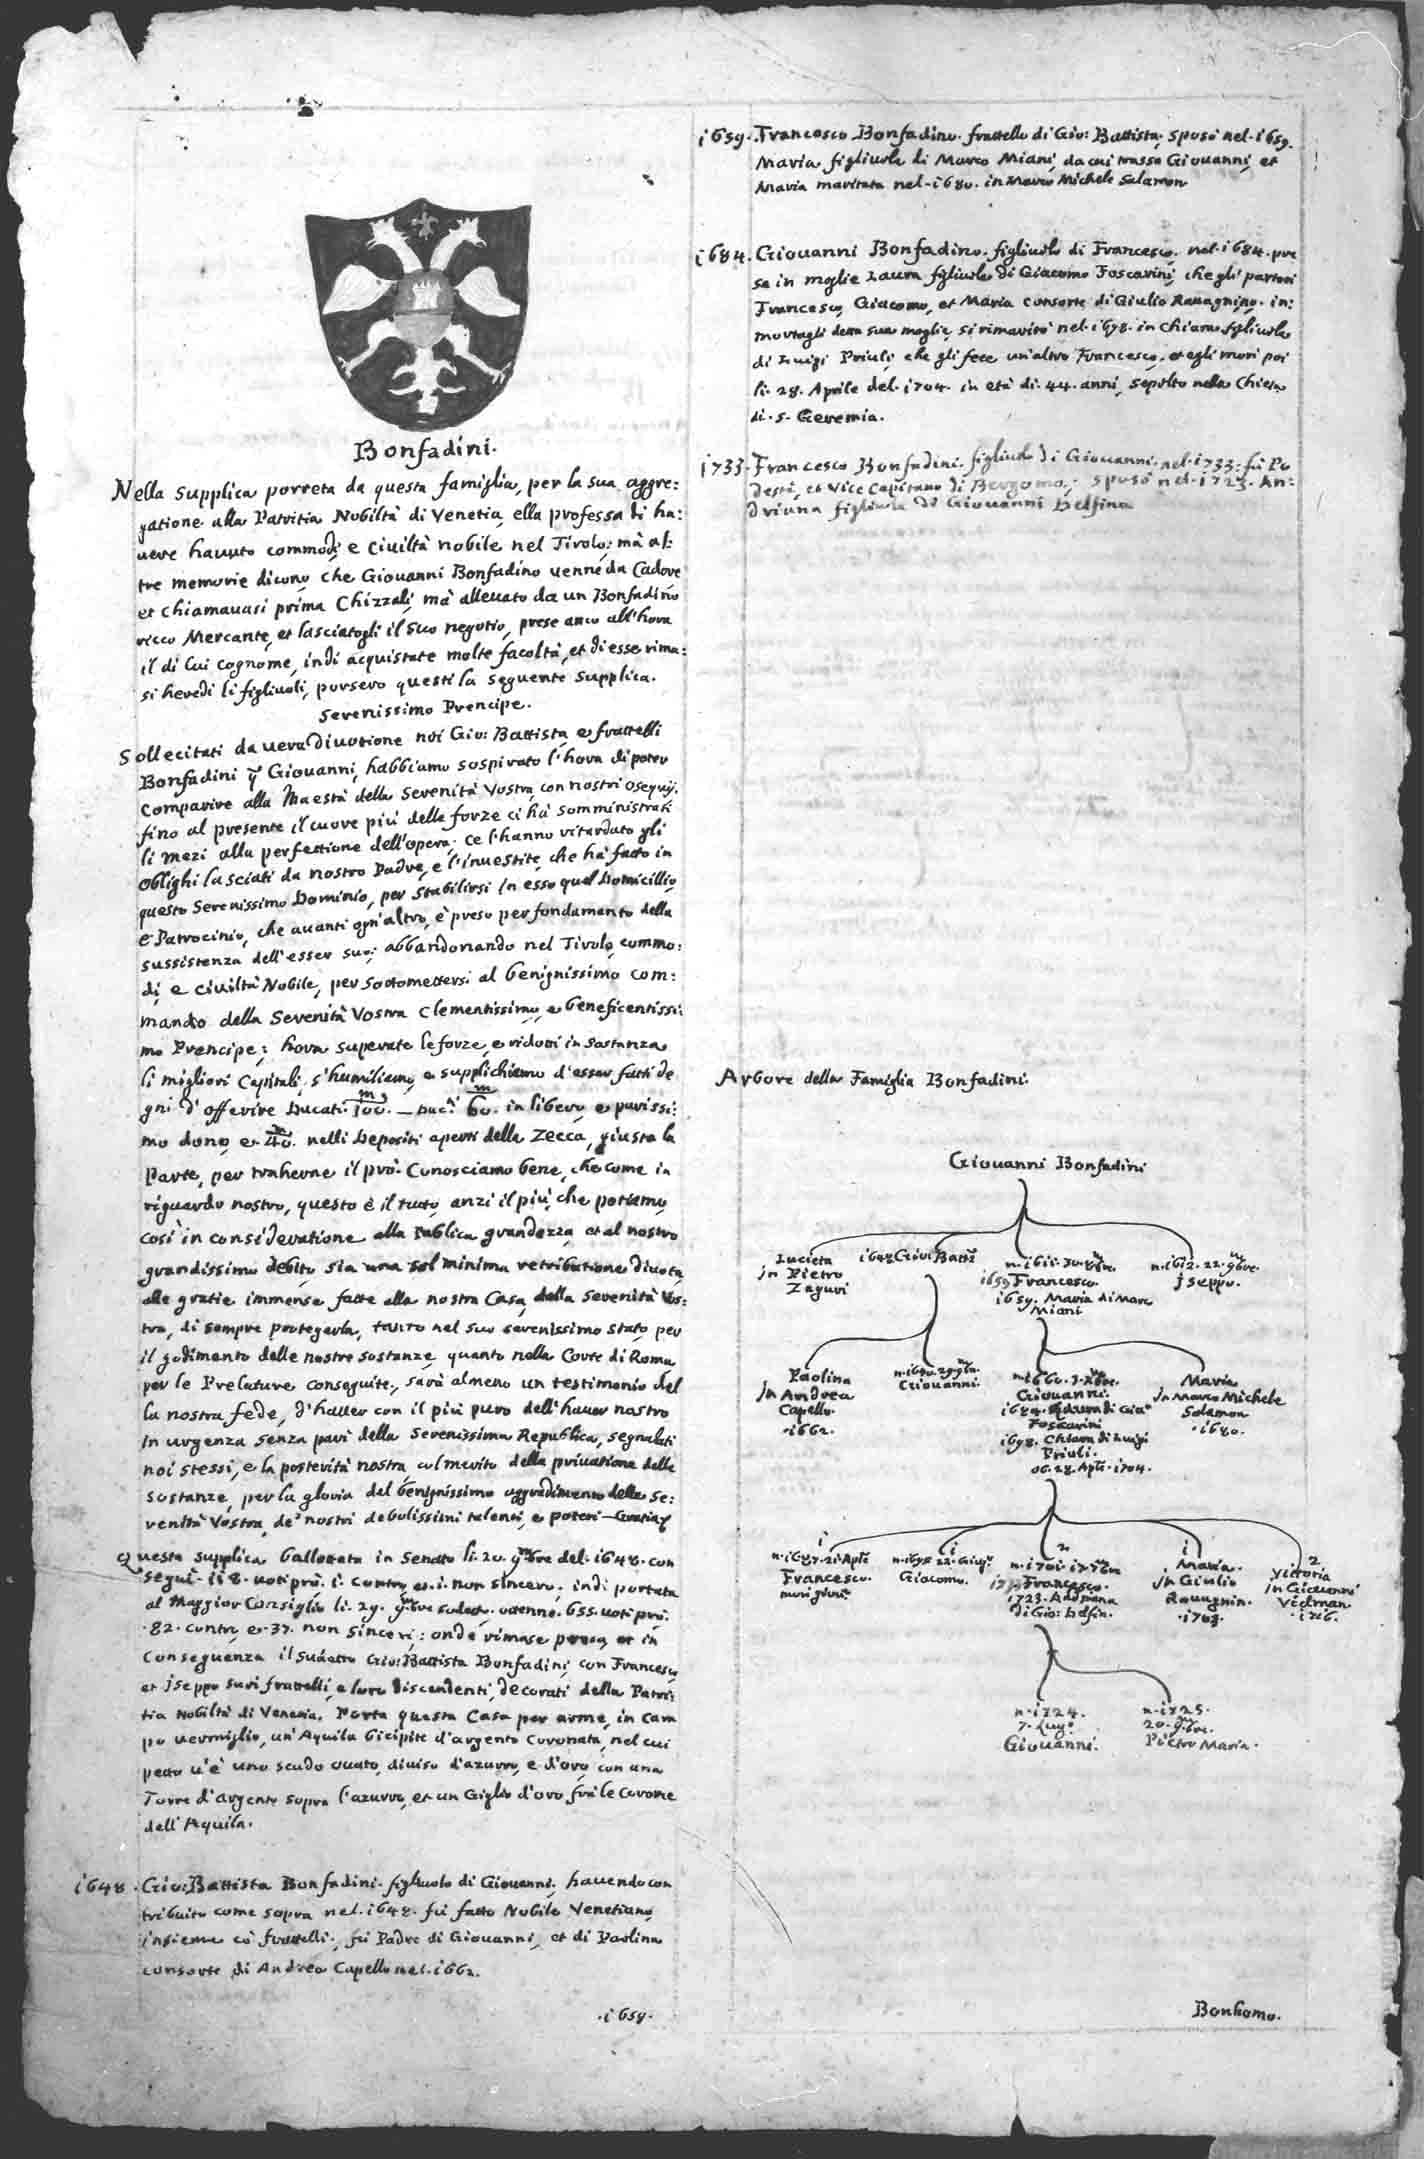 Bonfadini.
Nella supplica porreta da questa famiglia, per la sua aggre:
gatione alla Patritia Nobiltà di Venetia, ella professa di ha:
uere hauuto commodi, e Ciuiltà nobile nel Tirolo; mà al:
tre memorie dicono, che Giouanni Bonfadino uenne da Cadore
et chiamauasi prima Chizzali, mà alleuato da un Bonfadino
ricco Mercante, et lasciatogli il suo negotio, prese anco all'hora
il di lui cognome, indi acquistate molte facoltà, et di esse rima:
si heredi li figliuoli, porsero questi la seguente supplica.
Serenissimo Prencipe.
Sollecitati da uera diuotione noi Gio: Battista, e frattelli
Bonfadini q.m Giouanni, habbiamo sospirato l'hora di poter
Comparire alla Maestà della Serenità Vostra, con nostri osequij.
fino al presente il cuore più delle forze ci hà somministrati
li mezi alla perfettione dell'opera; ce l'hanno ritardato gli
oblighi lasciati da nostro Padre, e l'inuestite, che hà fatto in
questo Serenissimo Dominio, per stabilirsi in esso quel Domicillio,
e Patrocinio, che auanti ogn'altro, è preso per fondamento della
sussistenza dell'esser suo; abbandonando nel Tirolo, commo:
di, e Ciuiltà Nobile, per sottomettersi al benignissimo com:
mando della Serenità Vostra Clementissimo, e beneficentissi:
mo Prencipe; hora superate le forze, e ridotti in sostanza
li migliori Capitali, s'humiliamo, e supplichiamo d'esser fatti de
gni d'offerire Ducati m/100. — Duc.ti m/60. in libero, e purissi:
mo dono, e m/40. nelli Depositi aperti della Zecca, giusta la
Parte, per traherne il prò. Conosciamo bene, che come in
riguardo nostro, questo è il tutto, anzi il più, che potiamo,
così in consideratione alla Publica grandezza, et al nostro
grandissimo debito, sia una sol minima retributione diuota,
alle gratie immense fatte alla nostra Casa, della Serenità Vos:
tra, di sempre protegerla, tanto nel suo serenissimo Stato, per
il godimento delle nostre sostanze, quanto nella Corte di Roma
per le Prelature conseguite, sarà almeno un testimonio del
la nostra fede, d'hauer con il più puro dell'hauer nostro
in urgenza senza pari della Serenissima Republica, segnalati
noi stessi, e la posterità nostra col merito della priuatione delle
sostanze, per la gloria del benignissimo aggradimento della Se:
renità Vostra, de' nostri debolissimi talenti, e poteri. Gratiæ
Questa supplica ballottata in Senato li. 20. 9mbre del. 1648. con
seguì. 118. uoti prò. 1. Contro, et. 1. non sincero; indi portata
al Maggior Consiglio li. 29. 9mbre sudetto, ottenne. 655. uoti prò.
.82. contro, et. 37. non sinceri; onde rimase presa, et in
Conseguenza il sudetto Gio: Battista Bonfadini, con Francesco,
et Iseppo suoi frattelli, e loro discendenti, decorati della Patri:
tia Nobiltà di Venetia. Porta questa Casa per arme, in cam
po uermiglio, un'Aquila bicipite d'argento Coronata, nel cui
petto u'è uno scudo ouato, diuiso d'azurro, e d'oro, con una
Torre d'argento sopra l'azurro, et un Giglio d'oro frà le Corone
dell'Aquila.
1648. Gio: Battista Bonfadini. figliuolo di Giouanni, hauendo con
tribuito come sopra nel. 1648. fù fatto Nobile Venetiano,
insieme cò frattelli; fù Padre di Giouanni, et di Paolina
consorte di Andrea Capello nel. 1662.
.1659.
1659. Francesco Bonfadino. frattello di Gio: Battista, sposò nel. 1659.
Maria figliuola di Marco Miani, da cui trasse Giouanni, et
Maria maritata nel. 1680. in Marco Michele Salamon
1684. Giouanni Bonfadino. figliuolo di Francesco. nel. 1684. pre
se in moglie Laura figliuola di Giacomo Foscarini, che gli partorì
Francesco, Giacomo, et Maria consorte di Giulio Rauagnino. in:
mortagli detta sua moglie, si rimaritò nel. 1698. in Chiara figliuola
di Luigi Priuli, che gli fece un'altro Francesco, et egli morì poi
li. 28. Aprile del. 1704. in età di. 44. anni, sepolto nella Chiesa
di. S. Geremia.
1733. Francesco Bonfadini. figliuolo di Giouanni. nel. 1733. fù Po
destà, et Vice Capitano di Bergamo; sposò nel. 1723. An:
driana figliuola di Giouanni Delfino
Arbore della Famiglia Bonfadini.
Giouanni Bonfadini
Lucieta
in Pietro
Zaguri
1648 Gio: Batt.a
n. 1611. 30. 8bre.
1659 Francesco.
1659. Maria di Marco
Miani
n. 1612. 22. 9bre.
Iseppo.
Paolina
in Andrea
Capello.
.1662.
n. 1640. 29. 9bre.
Giouanni.
n. 1660. 3. Xbre.
Giouanni.
1684. Laura di Gia.o
Foscarini
1698. Chiara di Luigi
Priuli.
ob. 28. Aple. 1704.
Maria
in Marco Michele
Salamon
.1680.
1
n. 1687. 21. Aple.
Francesco.
morì giou.e
1
n. 1695. 22. Giug.o
Giacomo.
2
n. 1701. 17. 7bre
1733 Francesco.
1723. Andriana
di Gio: Delfin.
1
Maria.
in Giulio
Rauagnin.
.1708.
2
Vittoria
in Giouanni
Vidman
.1726.
n. 1724.
7. Lug.o
Giouanni.
n. 1725.
20. 9.bre.
Pietro Maria.
Bonhomo.